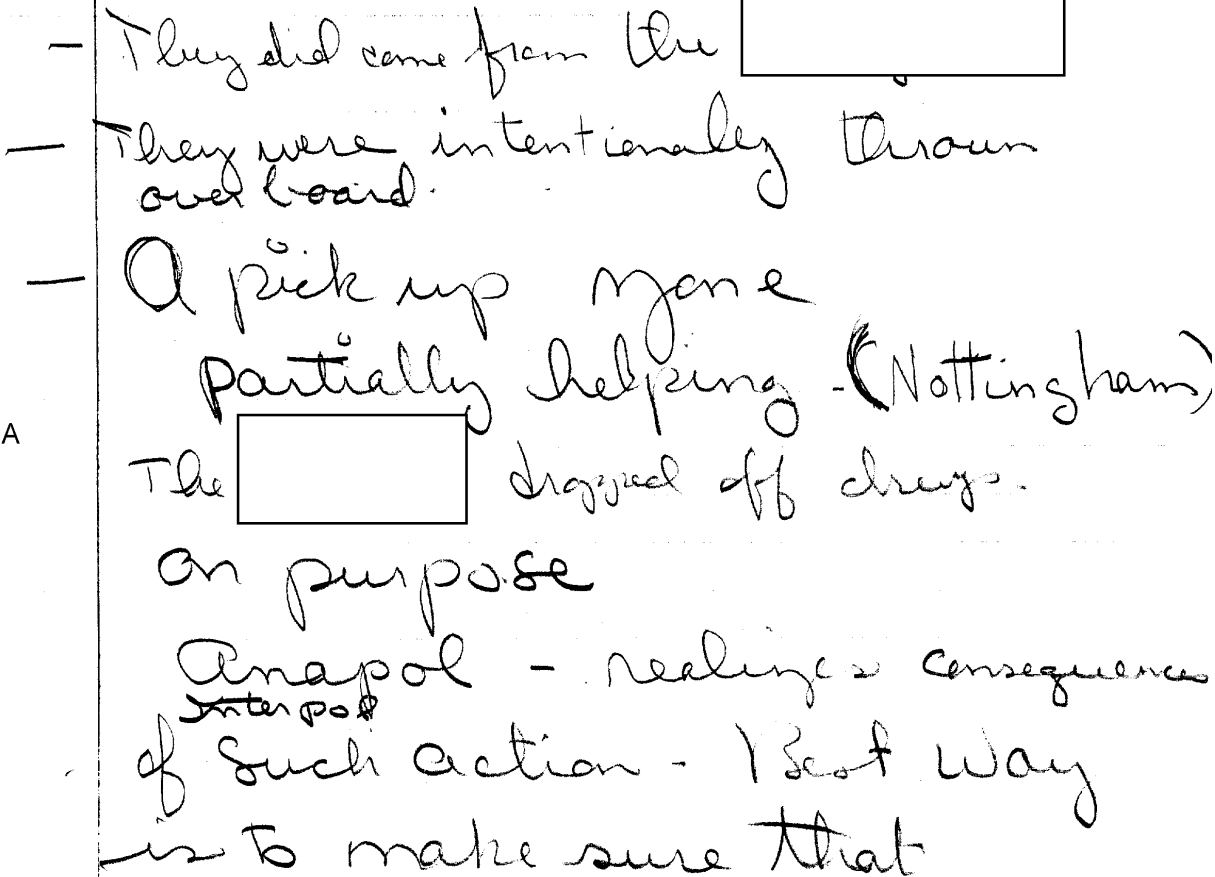 - They did come from the
- They were intentionally thrown
overboard.
- A pick up zone
partially helping - (Nottingham)
A
The dropped off drugs.
on purpose
Anapol - realizes consequences
Interpol
of such action - Best Way
is to make sure that